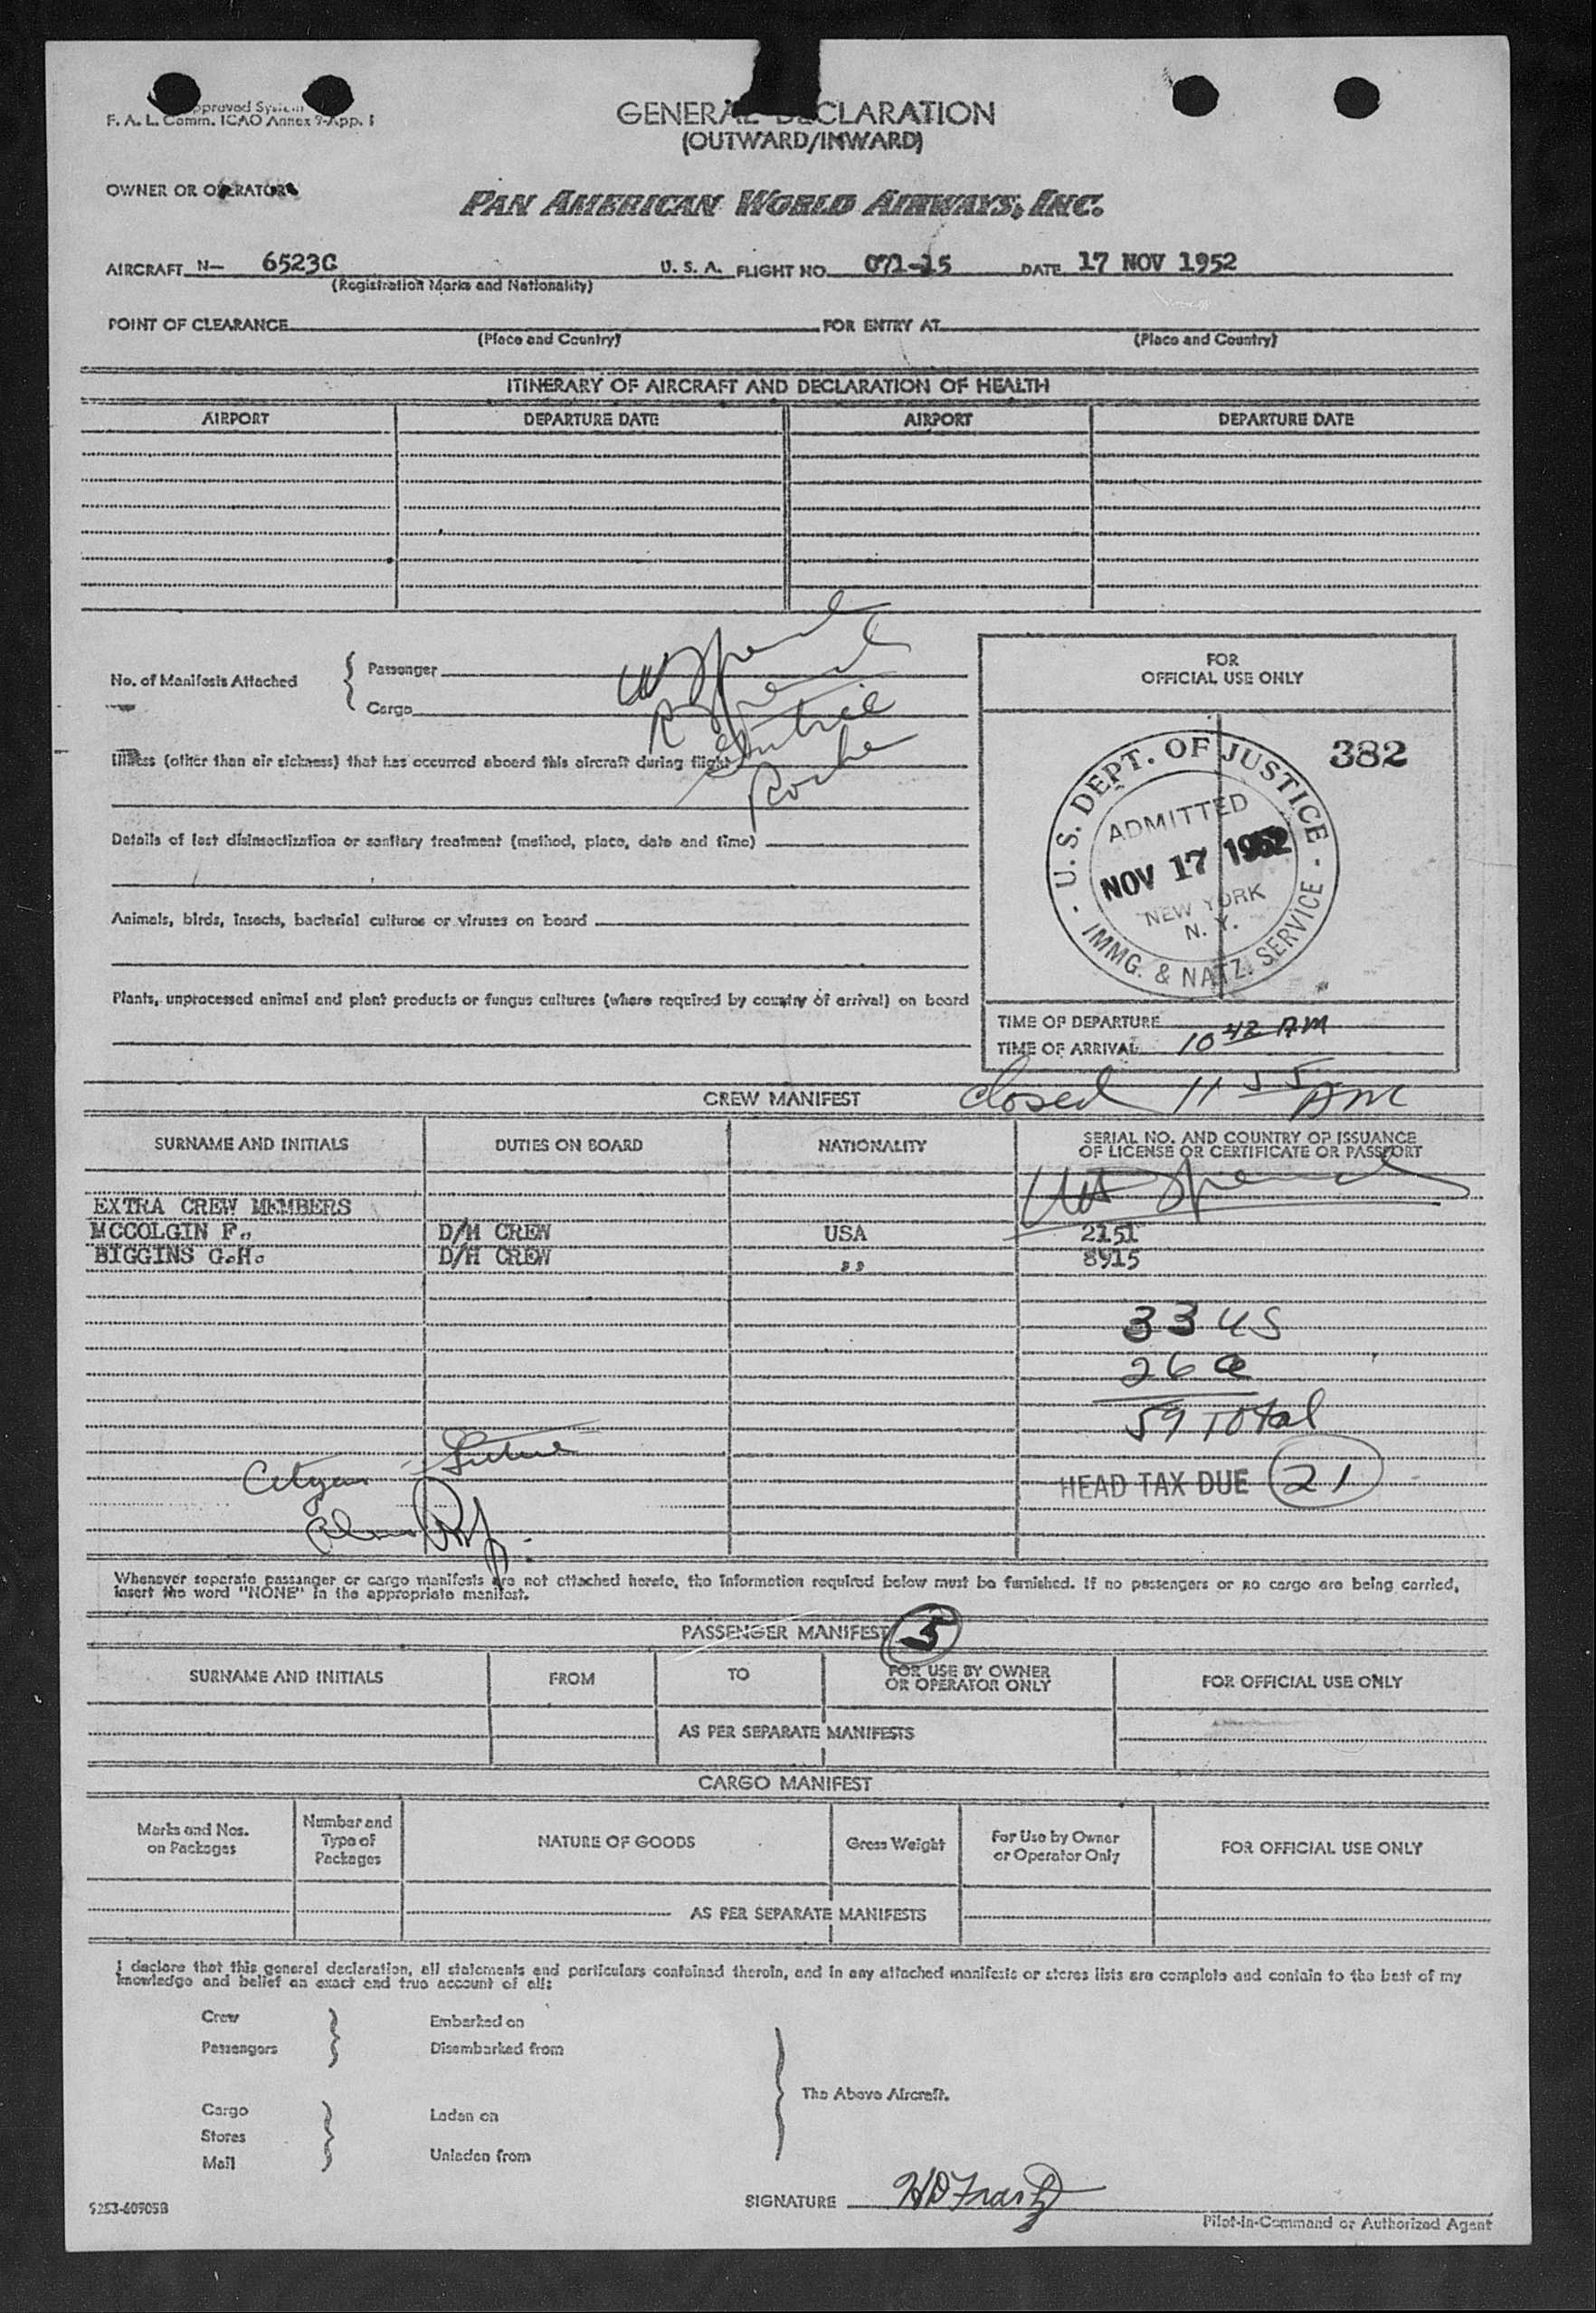 Approved System
F. A. L. Comm. ICAO Annex 9-App. 1
GENERAL DECLARATION
(OUTWARD/INWARD)
OWNER OR OPERATOR
PAN AMERICAN WORLD AIRWAYS, INC.
AIRCRAFT N- 6523C U. S. A. FLIGHT NO. 071-15 DATE 17 NOV 1952
(Registration Marks and Nationality)
POINT OF CLEARANCE FOR ENTRY AT
(Place and Country) (Place and Country)
ITINERARY OF AIRCRAFT AND DECLARATION OF HEALTH
AIRPORT DEPARTURE DATE AIRPORT DEPARTURE DATE
No. of Manifests Attached { Passenger
Cargo
Roche
Illness (other than air sickness) that has occurred aboard this aircraft during flight
Details of last disinsectization or sanitary treatment (method, place, date and time)
Animals, birds, insects, bacterial cultures or viruses on board
Plants, unprocessed animal and plant products or fungus cultures (where required by country of arrival) on board
FOR
OFFICIAL USE ONLY
382
U. S. DEPT. OF JUSTICE
ADMITTED
NOV 17 1952
NEW YORK
N. Y.
IMMG. & NATZ. SERVICE
TIME OF DEPARTURE
TIME OF ARRIVAL 10 42 AM
closed 11 55 AM
CREW MANIFEST
SURNAME AND INITIALS DUTIES ON BOARD NATIONALITY SERIAL NO. AND COUNTRY OF ISSUANCE
OF LICENSE OR CERTIFICATE OR PASSPORT
EXTRA CREW MEMBERS
MCCOLGIN F., D/H CREW USA 2151
BIGGINS G.H. D/H CREW ,, 8915
33 US
26 a
59 Total
HEAD TAX DUE 21
Whenever separate passenger or cargo manifests are not attached hereto, the information required below must be furnished. If no passengers or no cargo are being carried,
insert the word "NONE" in the appropriate manifest.
PASSENGER MANIFEST 5
SURNAME AND INITIALS FROM TO FOR USE BY OWNER
OR OPERATOR ONLY FOR OFFICIAL USE ONLY
AS PER SEPARATE MANIFESTS
CARGO MANIFEST
Marks and Nos.
on Packages Number and
Type of
Packages NATURE OF GOODS Gross Weight For Use by Owner
or Operator Only FOR OFFICIAL USE ONLY
AS PER SEPARATE MANIFESTS
I declare that this general declaration, all statements and particulars contained therein, and in any attached manifests or stores lists are complete and contain to the best of my
knowledge and belief an exact and true account of all:
Crew Embarked on
Passengers Disembarked from
The Above Aircraft.
Cargo Laden on
Stores
Mail Unladen from
SIGNATURE
Pilot-in-Command or Authorized Agent
9253-60905B